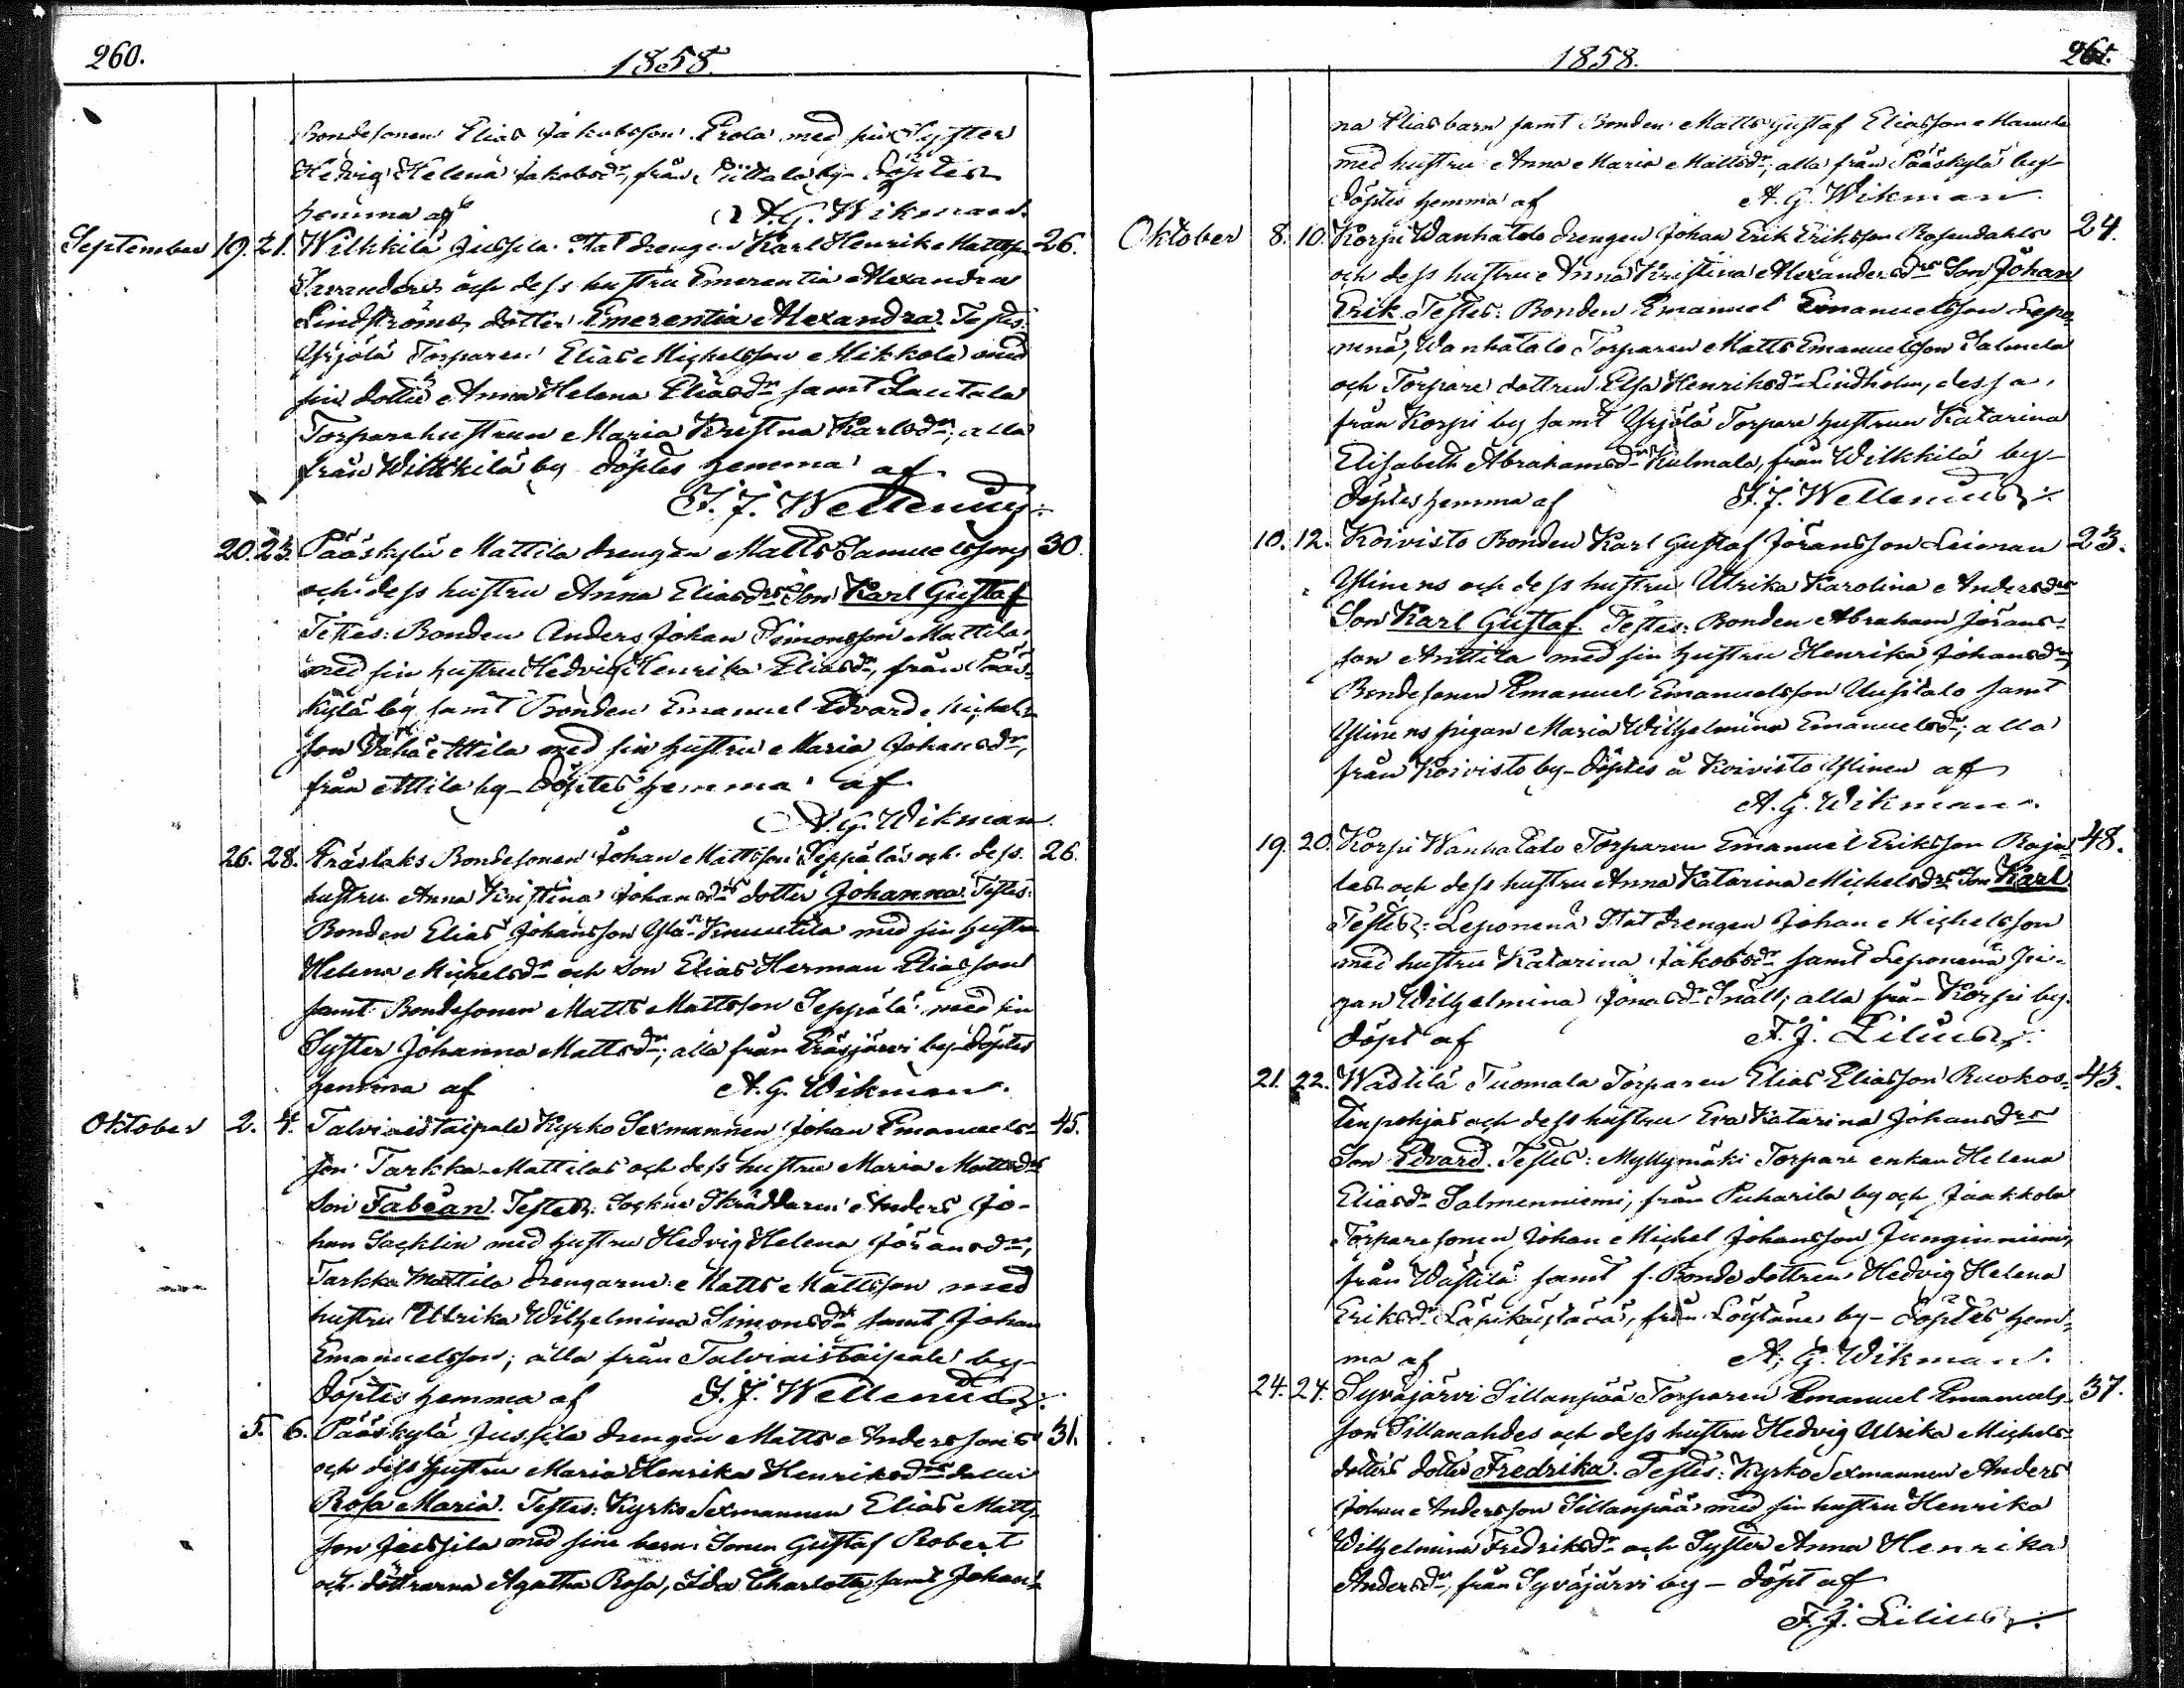 260.
1858.
Bondesonen Elias Jakobsson Erola med sin Syster
Hedvig Helena Jakobsdr, från Sittala by - Döptes
hemma af A. G. Wikman.
September 19. 21. Wilkkilä Jussila Stat drengen Karl Henrik Mattss. 26.
och dess hustru Emerentia Alexandra
Lindströms dotter Emerentia Alexandra. Testes:
Yrjölä Torparen Elias Michelsson Mikkola med
sin dotter Anna Helena Eliasdr samt Lautala
Torparehustrun Maria Kristina Karlsdr; alla
från Wilkkilä by Döptes hemma af
F. J. Wellenius:
20. 23. Pääskylä Mattila drengen Matts Samuelssons 30.
och dess hustru Anna Eliasdrs Son Karl Gustaf
Testes: Bonden Anders Johan Simonsson Mattila
med sin hustru Hedvig Henrika Eliasdr, från Pääs-
kylä by samt Bonden Emanuel Edvard Michels-
son Vähä Attila med sin hustru Maria Johansdr,
från Attila by - Döptes hemma af
A. G. Wikman.
26. 28. Träslaks Bondesonen Johan Mattsson Seppäläs och dess 26.
hustru Anna Kristina Johansdrs dotter Johanna. Testes:
Bonden Elias Johansson Ylä-Knuutila med sin hustru
Helena Michelsdr och son Elias Herman Eliasson
samt Bondesonen Matts Mattsson Seppälä med sin
Syster Johanna Mattsdr; alla från Träsjärvi by - Döptes
hemma af A. G. Wikman.
Oktober 2. 4. Talviaistaipale Kyrko Sexmannen Johan Emanuels- 45.
son Tarkka-Mattilas och dess hustru Maria Mattsdrs
Son Fabian. Testes: Sockne Skräddaren Anders Jo-
han Sacklin med hustru Hedvig Helena Göransdr,
Tarkka Mattila drengarne: Matts Mattsson med
hustru Ulrika Wilhelmina Simonsdr samt Johan
Emanuelsson; alla från Talviaistaipale by -
Döptes hemma af F. J. Wellenius:
5. 6. Pääskylä Jussila drengen Matts Anderssons 31.
och dess hustru Maria Henrika Henriksdrs dotter
Rosa Maria. Testes: Kyrko Sexmannen Elias Matts-
son Jussila med sine barn: Sonen Gustaf Robert
och döttrarna Agatha Rosa, Ida Charlotta samt Johan-
1858.
261.
na Elias barn samt Bonden Matts Gustaf Eliasson
med hustru Anna Maria Mattsdr; alla från Pääskylä by -
Döptes hemma af A. G. Wikman.
Oktober 8. 10. Korpi Wanhatalo drengen Johan Erik Eriksson Rosendahls 24.
och dess hustru Anna Kristina Alexandersdrs Son Johan
Erik. Testes: Bonden Emanuel Emanuelsson Lepo-
nena, Wanhatalo Torparen Matts Emanuelsson Salmela
och Torpare dottren Elsa Henriksdr Lindholm, dessa
från Korpi by samt Yrjölä Torpare hustrun Katarina
Elisabeth Abrahamsdr Kulmala, från Wilkkilä by -
Döptes hemma af F. J. Wellenius:
10. 12. Koivisto Bonden Karl Gustaf Göransson Leiman 23.
Ylinens och dess hustru Ulrika Karolina Andersdrs
Son Karl Gustaf. Testes: Bonden Abraham Görans-
son Anttila med sin hustru Henrika Johansdr,
Bondesonen Emanuel Emanuelsson Uusitalo samt
Ylinens pigan Maria Wilhelmina Emanuelsdr; alla
från Koivisto by - Döptes å Koivisto Ylinen af
A. G. Wikman.
19. 20. Korpi Wanhatalo Torparen Emanuel Eriksson Raja- 48.
las och dess hustru Anna Katarina Michelsdrs Son Karl
Testes: Leponena Stat drengen Johan Michelsson
med hustru Katarina Jakobsdr samt Leponena Pi-
gan Wilhelmina Jonasdr Snäll; alla från Korpi by.
Döpt af F. J. Lilius:
21. 22. Wästilä Tuomala Torparen Elias Eliasson Ruokos- 43.
tenpohjas och dess hustru Eva Katarina Johansdrs
Son Edvard. Testes: Myllymäki Torpare enkan Helena
Eliasdr Salmenniemi, från Puharila by och Jaakkola
Torparesonen Johan Michel Johansson Junginniemi,
från Wästilä samt f. Bonde dottren Hedvig Helena
Eriksdr Läpikäytävä, från Löytäne by - Döptes hem-
ma af A. G. Wikman.
24. 24. Syväjärvi Sillanpää Torparen Emanuel Emanuels- 37.
son Sillanahdes och dess hustru Hedvig Ulrika Michels-
dotters dotter Fredrika. Testes: Kyrko Sexmannen Anders
Johan Andersson Sillanpää med sin hustru Henrika
Wilhelmina Fredriksdr och Syster Anna Henrika
Andersdr, från Syväjärvi by - Döpt af
F. J. Lilius: